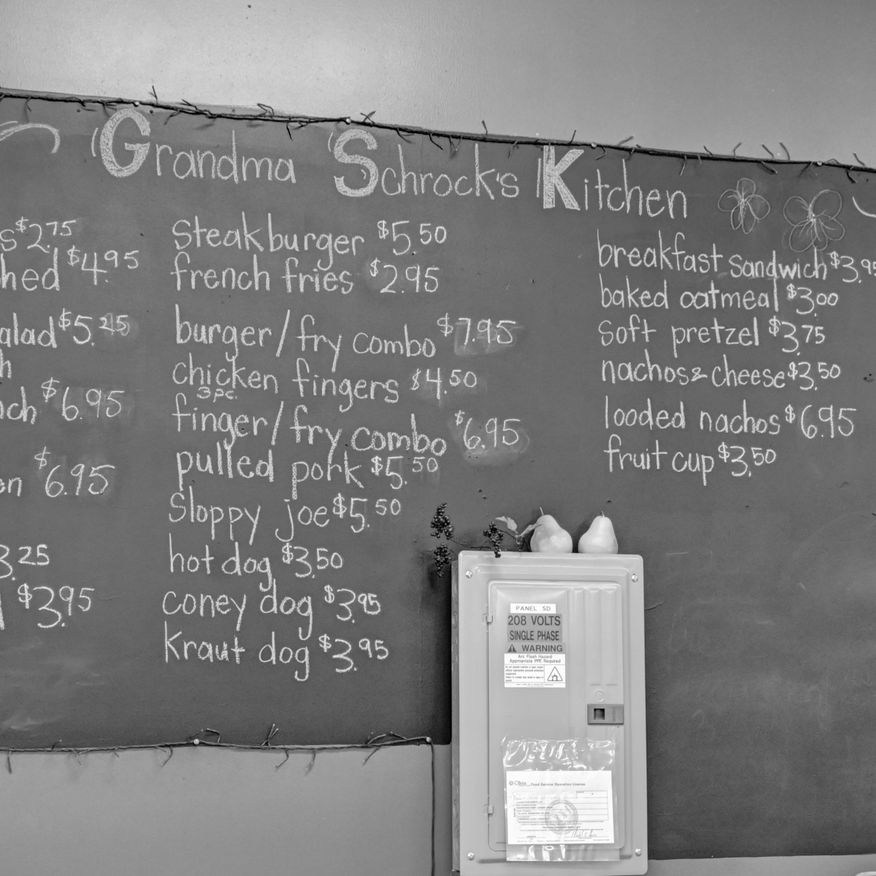 Grandma Schrock's Kitchen
s $2.75
hed $4.95
alad $5.25
h
ch $6.95
en $6.95
3.25
$3.95
steakburger $5.50
french fries $2.95
burger/fry combo $7.95
chicken fingers $4.50
3pc.
finger/fry combo $6.95
pulled pork $5.50
sloppy joe $5.50
hot dog $3.50
coney dog $3.95
kraut dog $3.95
breakfast sandwich $3.95
baked oatmeal $3.00
soft pretzel $3.75
nachos & cheese $3.50
looded nachos $6.95
fruit cup $3.50
PANEL 5D
208 VOLTS
SINGLE PHASE
WARNING
Arc Flash Hazard
Appropriate PPE Required
Ohio Food Service Operation License